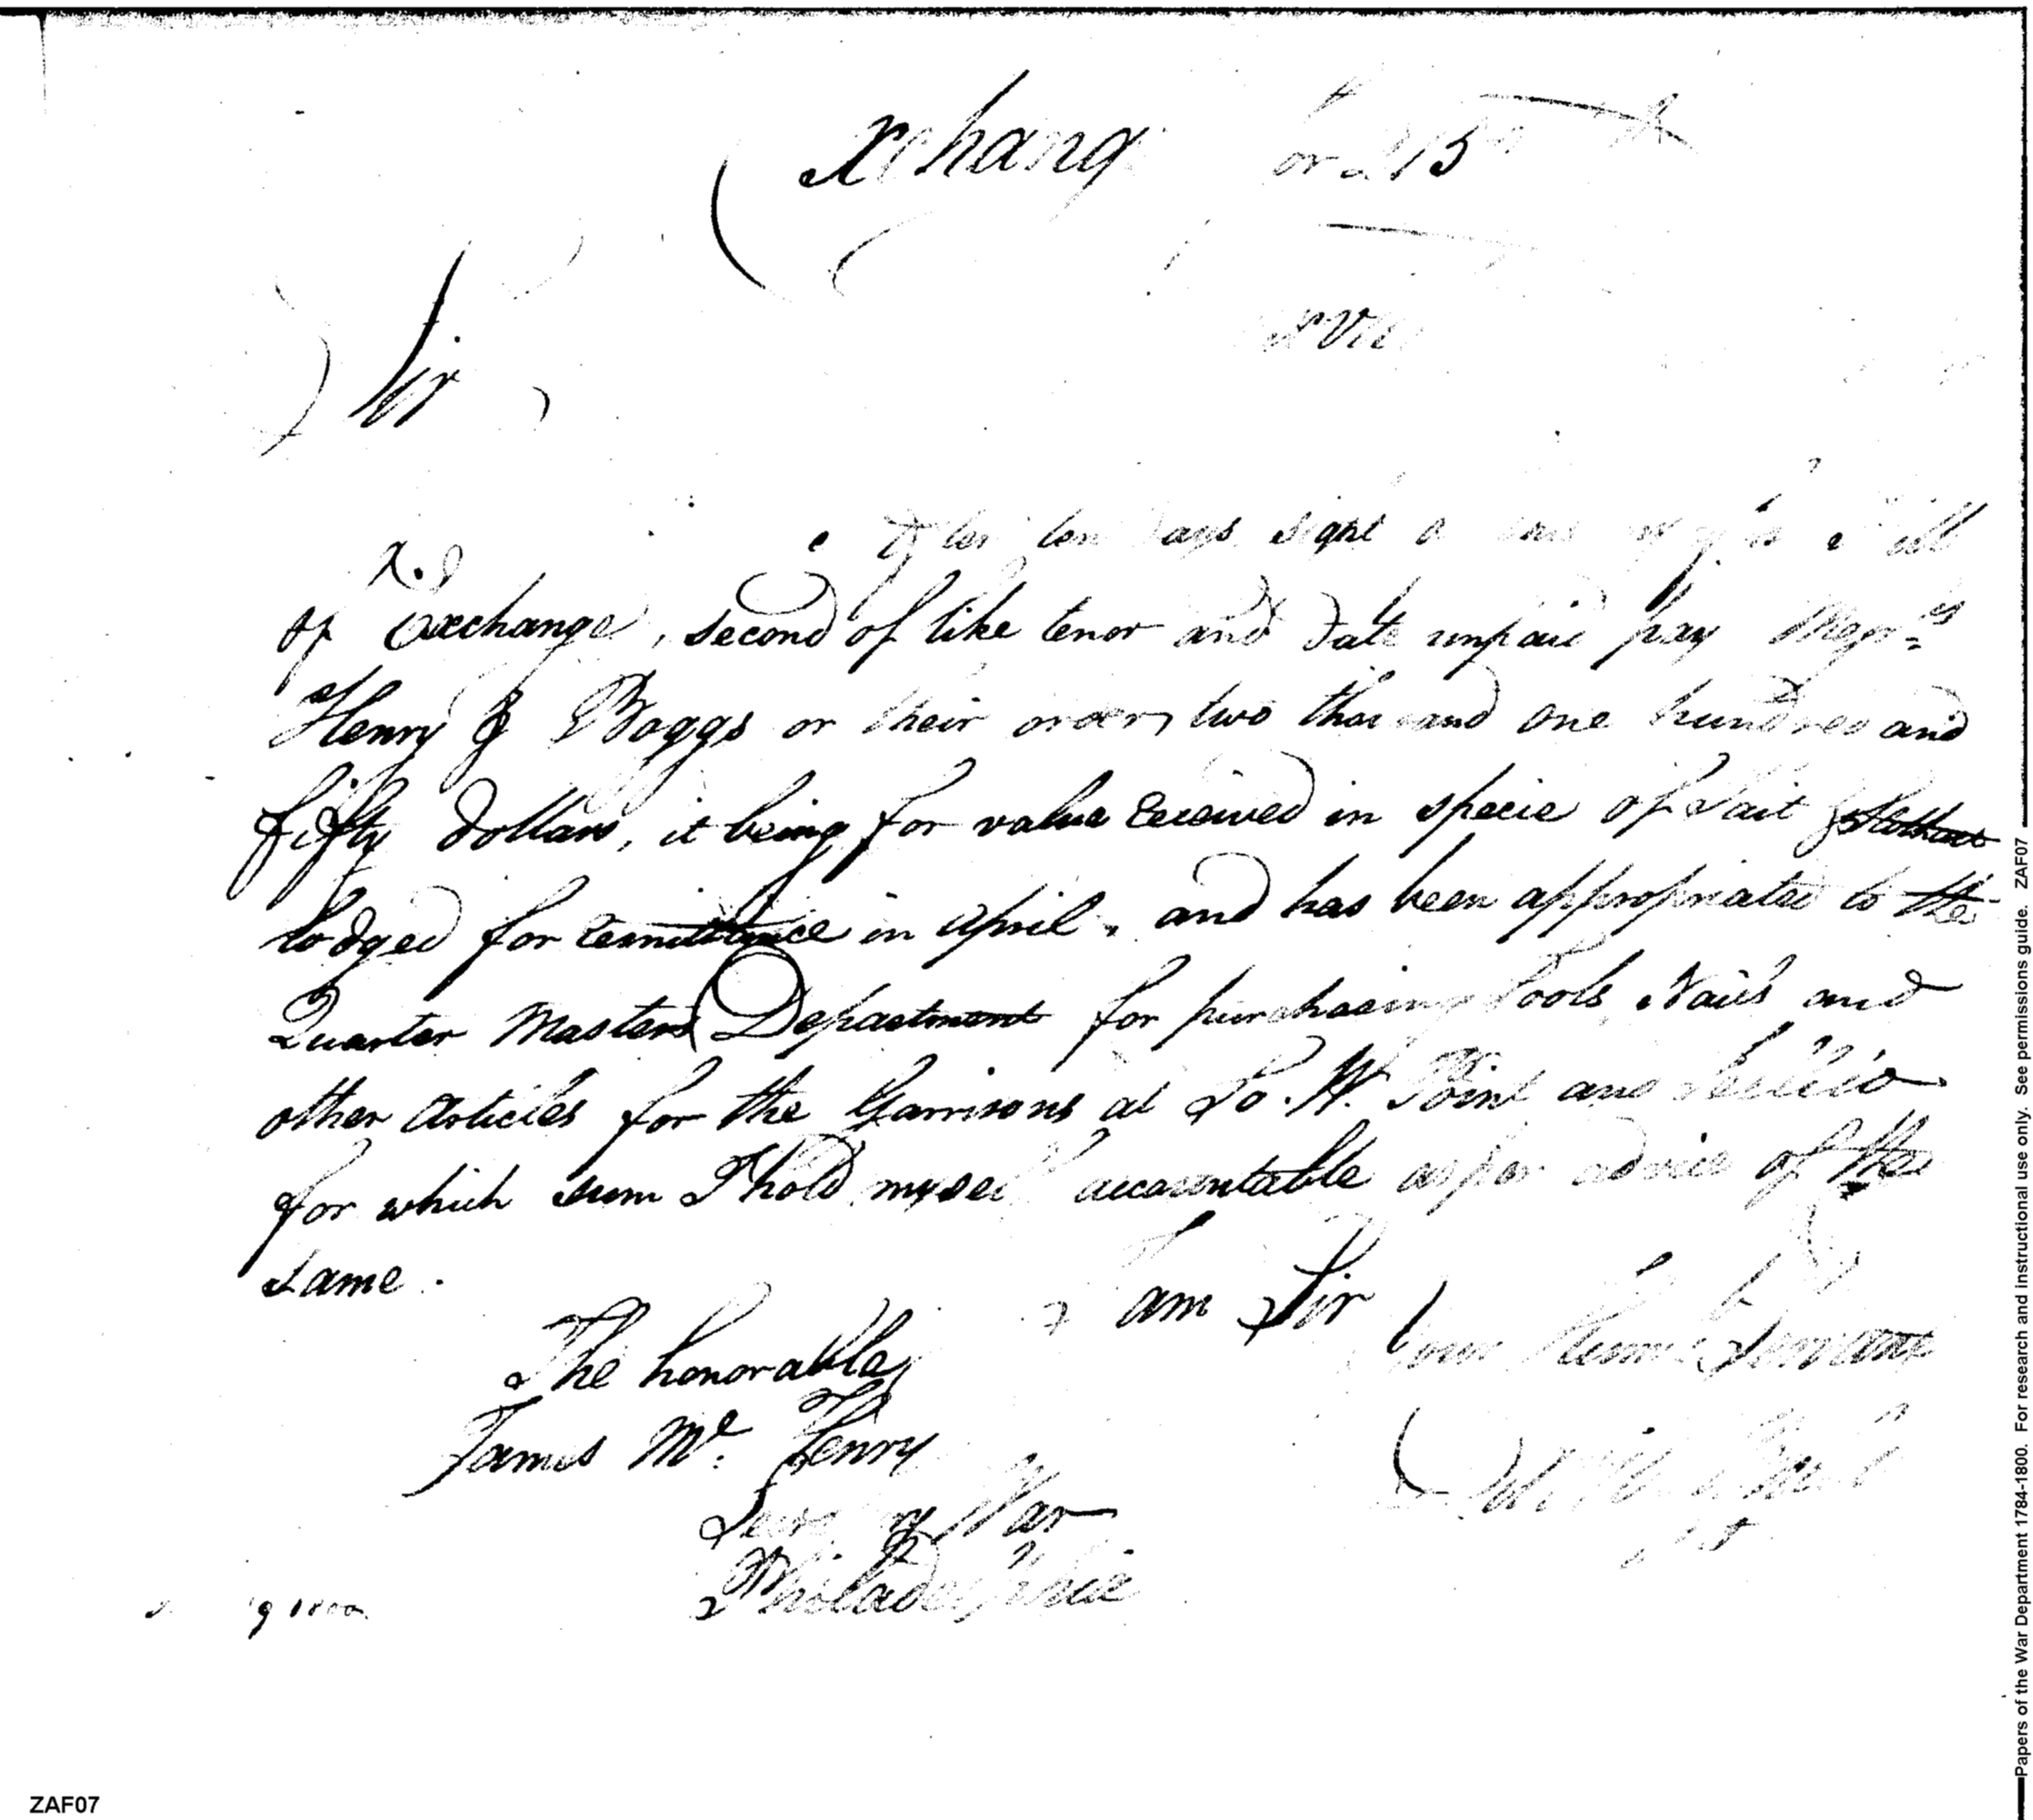 xchang or 215
Sir
ten days sight
of Exchange, second of like tenor and date unpaid pay Messrs
Henry & Boggs or their order, two thousand one hundred and
fifty dollars, it being for value received in specie of Sait
lodged for remittance in april, and has been appropriated to the
Quarter Masters Department for purchasing Tools, Nails and
other Articles for the Garrisons at So. W. Point and
for which sum I hold myself accountable as per advice of the
same.
I am Sir
your humble Servant
The honorable
James Mc. Henry
Secy of War
Philadelphia
9 1800
ZAF07
Papers of the War Department 1784-1800. For research and instructional use only. See permissions guide. ZAF07